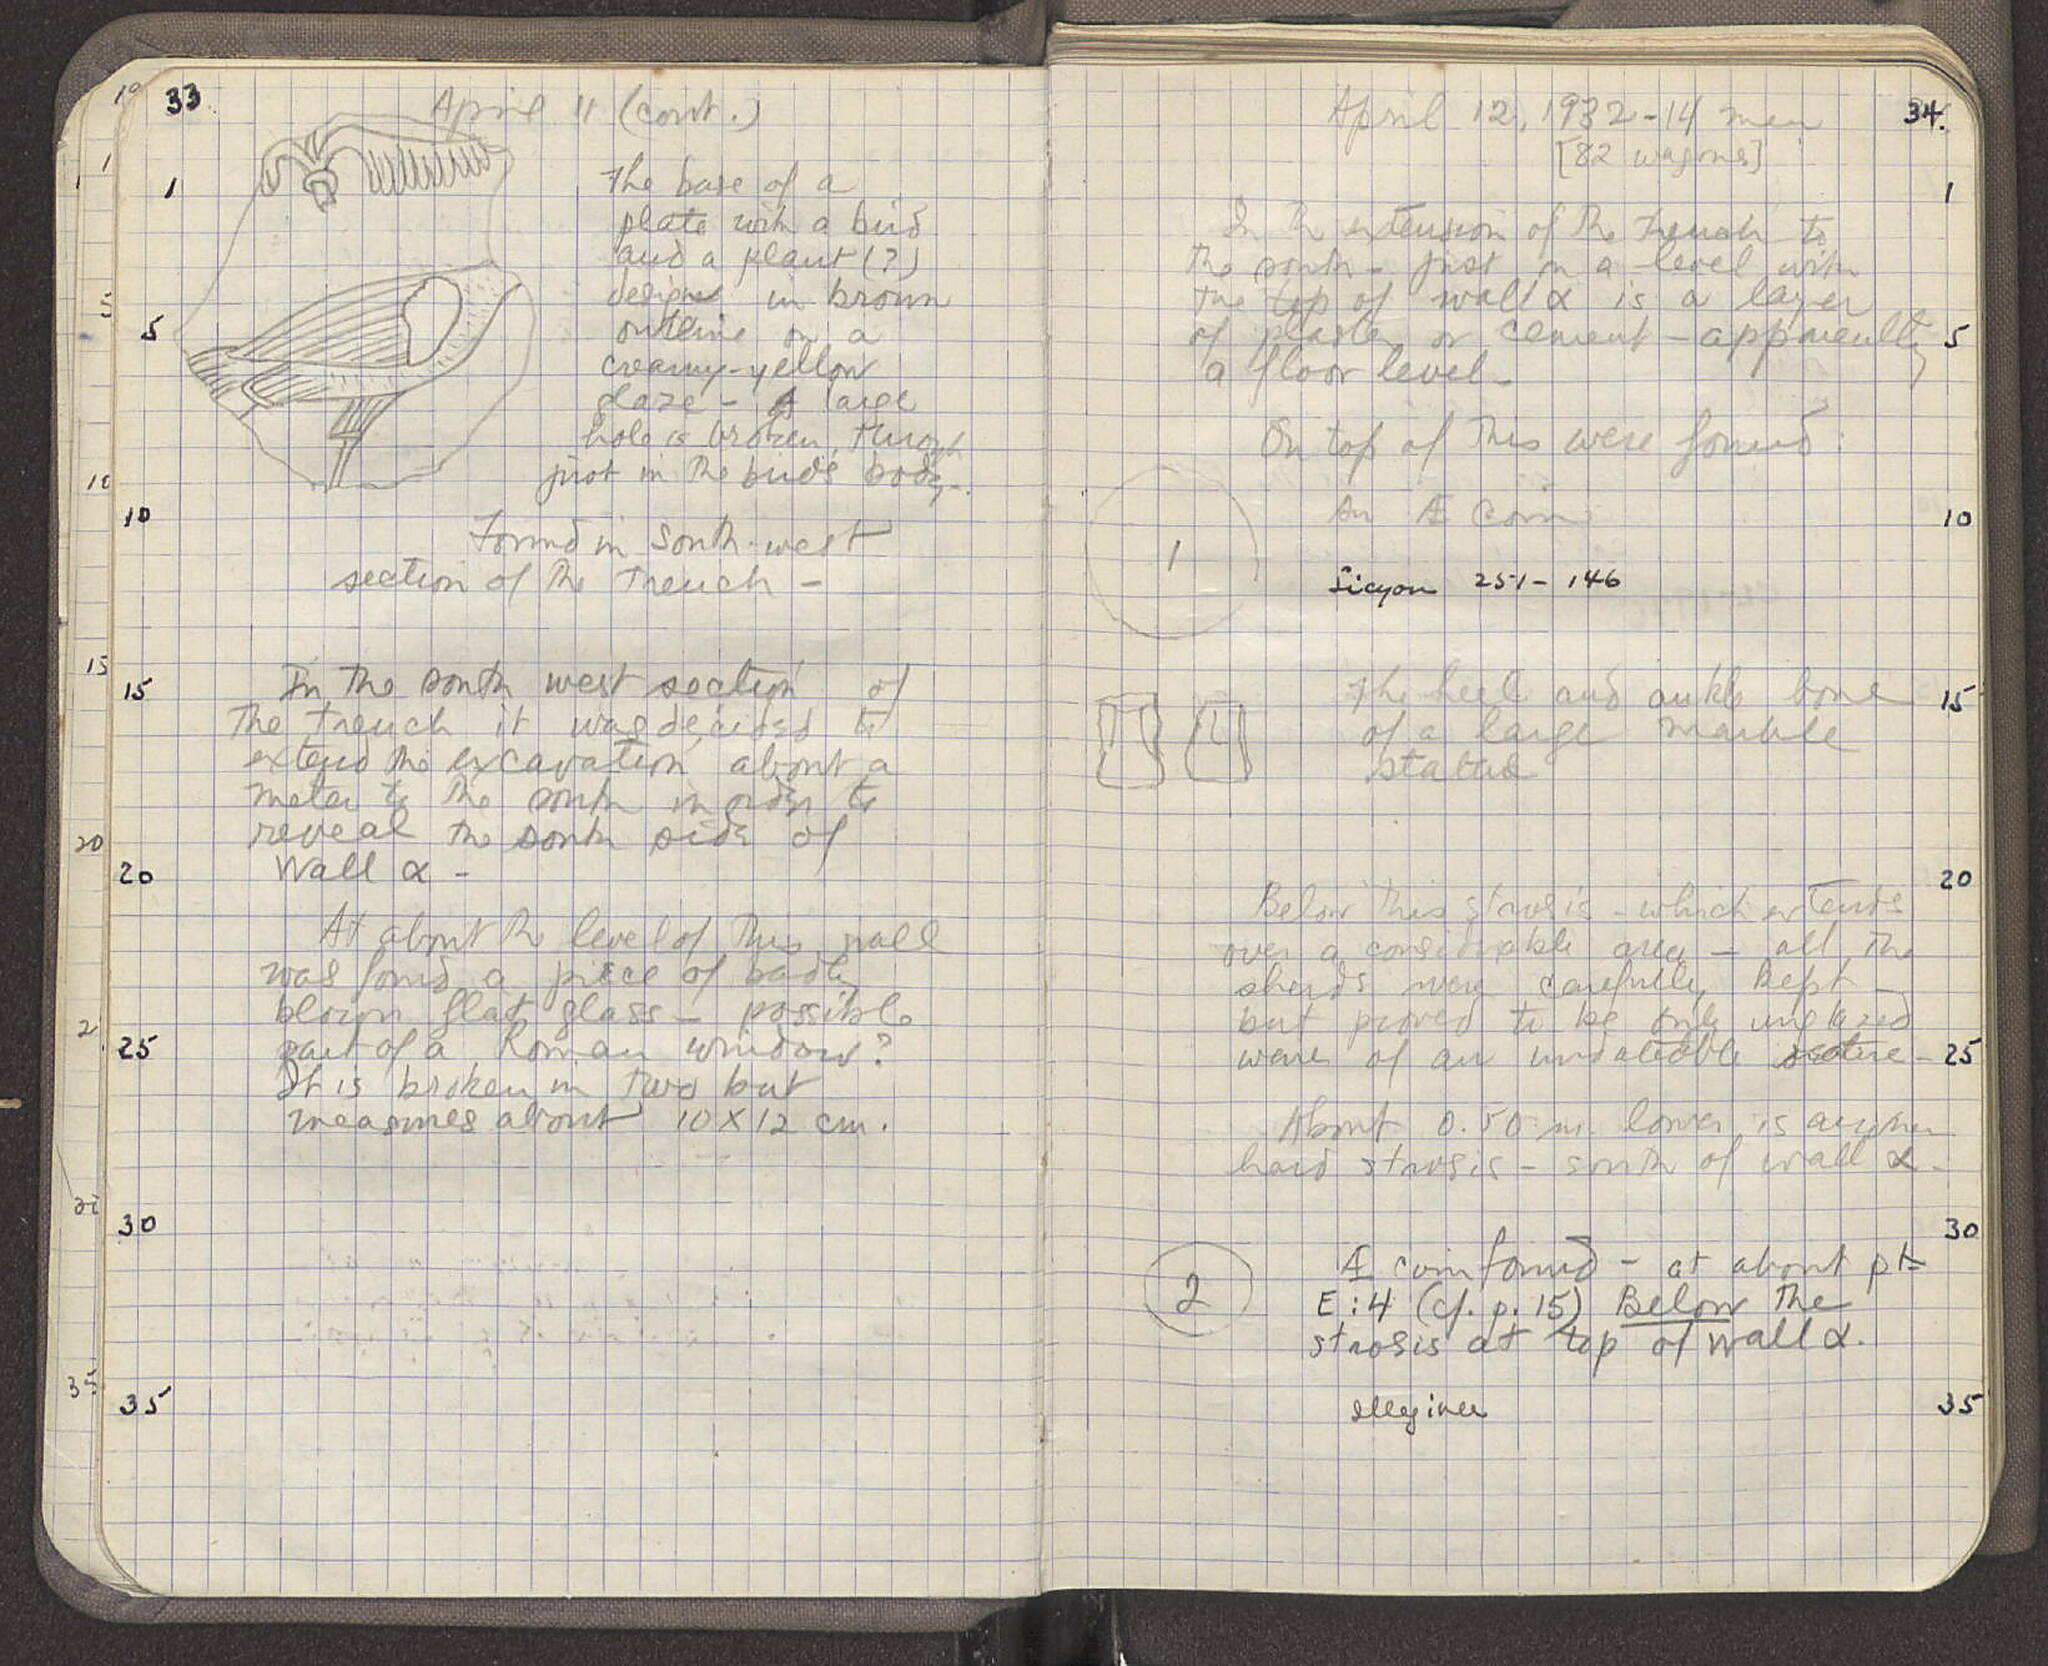 33
April 11 (cont.)
1
The base of a
plate with a bird
and a plant (?)
designs in brown
5
outline on a
creamy-yellow
glaze - A large
hole is broken through
just in the bird's body -.
10
Found in south-west
section of the trench -
15
In the south west section of
the trench it was decided to
extend the excavation about a
meter to the south in order to
reveal the south side of
20
Wall α -
At about the level of this wall
was found a piece of badly
blown flat glass - possible
25
part of a Roman window?
It is broken in two but
measures about 10 X 12 cm.
30
35
34.
April 12, 1932 - 14 men
[82 wagons]
1
In the extension of the trench to
the south - just on a level with
the top of wall α is a layer
of plaster or cement - apparently
5
a floor level -
On top of this were found:
1
An Æ coin
10
Sicyon 251-146
The heel and ankle bone
15
of a large marble
statue
20
Below this strosis - which extends
over a considerable area - all the
sherds were carefully kept -
but proved to be only unglazed
ware of an undateable nature -
25
About 0.50 m. lower is another
hard strosis - south of wall α -
30
2
Æ coin found - at about pt
E:4 (cf. p. 15) Below the
strosis at top of wall α.
35